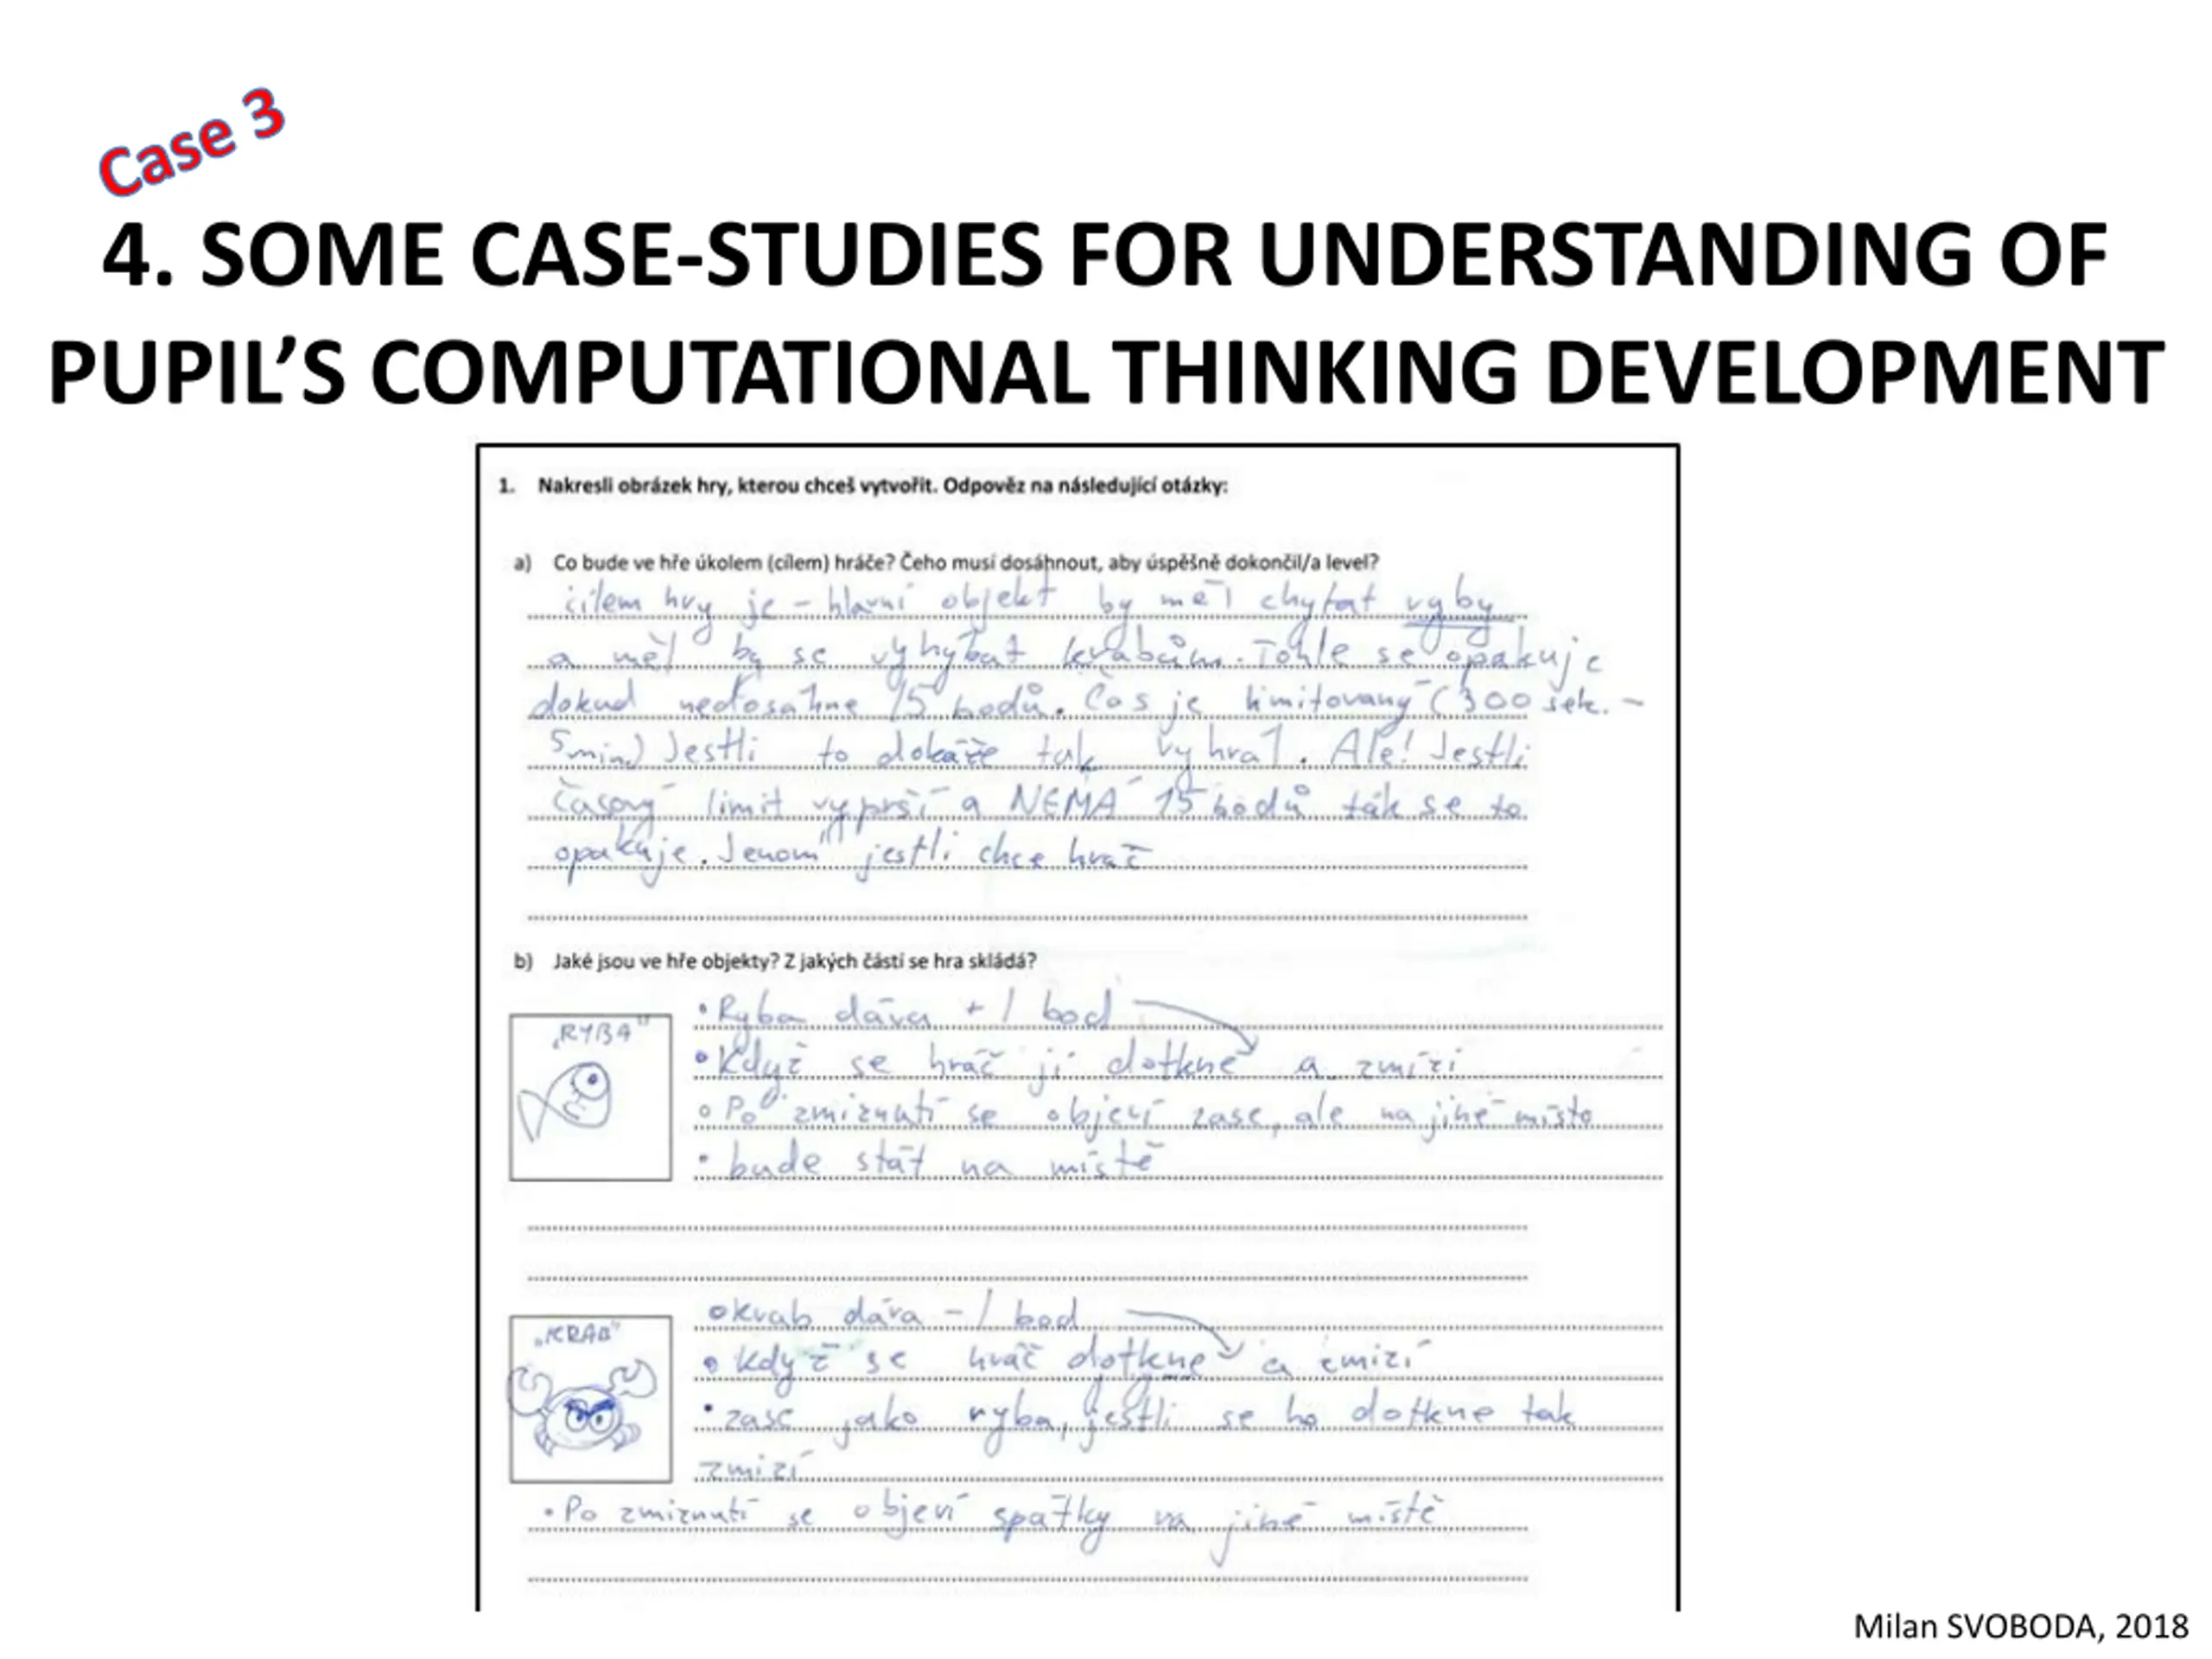 Case 3
4. SOME CASE-STUDIES FOR UNDERSTANDING OF
PUPIL’S COMPUTATIONAL THINKING DEVELOPMENT
1. Nakresli obrázek hry, kterou chceš vytvořit. Odpověz na následující otázky:
a) Co bude ve hře úkolem (cílem) hráče? Čeho musí dosáhnout, aby úspěšně dokončil/a level?
cílem hry je - hlavní objekt by měl chytat ryby
a měl by se vyhýbat krabům. Tohle se opakuje
dokud nedosáhne 15 bodů. Čas je limitovaný (300 sek. -
5min) Jestli to dokáže tak vyhrál. Ale! Jestli
časový limit vyprší a NEMÁ 15 bodů ták se to
opakuje. Jenom jestli chce hráč
b) Jaké jsou ve hře objekty? Z jakých částí se hra skládá?
„RYBA"
• Ryba dává + 1 bod
• Když se hráč jí dotkne a zmizí
• Po zmiznutí se objeví zase, ale na jiné místo
• bude stát na místě
„KRAB"
• krab dává - 1 bod
• Když se hráč dotkne a zmizí
• zase jako ryba, jestli se ho dotkne tak
zmizí
• Po zmiznutí se objeví spátky na jiné místě
Milan SVOBODA, 2018